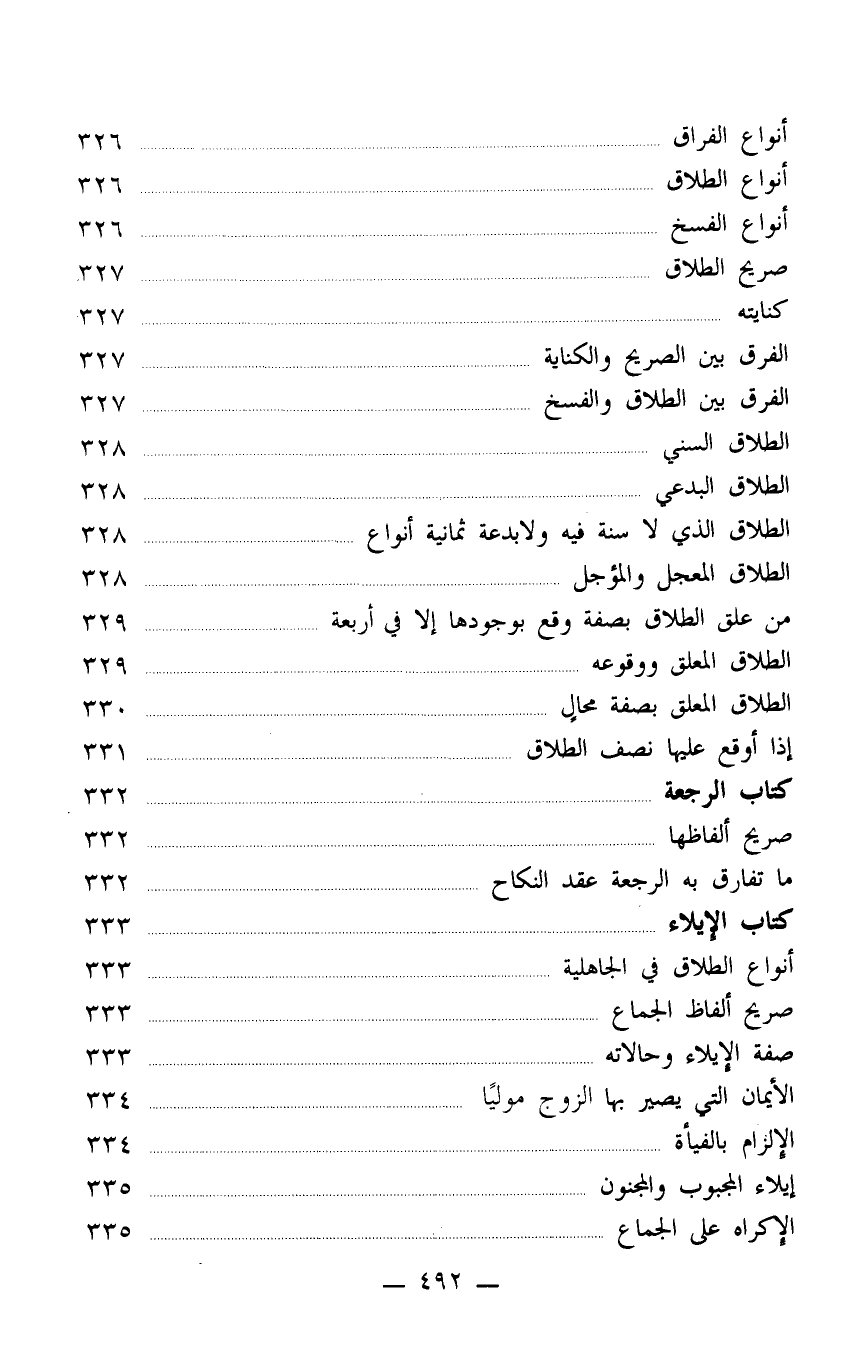 أنواع الفراق ........ ٣٢٦
أنواع الطلاق ........ ٣٢٦
أنواع الفسخ ........ ٣٢٦
صريح الطلاق ........ ٣٢٧
كنايته ........ ٣٢٧
الفرق بين الصريح والكناية ........ ٣٢٧
الفرق بين الطلاق والفسخ ........ ٣٢٧
الطلاق السني ........ ٣٢٨
الطلاق البدعي ........ ٣٢٨
الطلاق الذي لا سنة فيه ولابدعة ثمانية أنواع ........ ٣٢٨
الطلاق المعجل والمؤجل ........ ٣٢٨
من علق الطلاق بصفة وقع بوجودها إلا في أربعة ........ ٣٢٩
الطلاق المعلق ووقوعه ........ ٣٢٩
الطلاق المعلق بصفة محالٍ ........ ٣٣٠
إذا أوقع عليها نصف الطلاق ........ ٣٣١
كتاب الرجعة ........ ٣٣٢
صريح ألفاظها ........ ٣٣٢
ما تفارق به الرجعة عقد النكاح ........ ٣٣٢
كتاب الإيلاء ........ ٣٣٣
أنواع الطلاق في الجاهلية ........ ٣٣٣
صريح ألفاظ الجماع ........ ٣٣٣
صفة الإيلاء وحالاته ........ ٣٣٣
الأيمان التي يصير بها الزوج موليًا ........ ٣٣٤
الإلزام بالفيأة ........ ٣٣٤
إيلاء المجبوب والمجنون ........ ٣٣٥
الإكراه على الجماع ........ ٣٣٥
— ٤٩٢ —